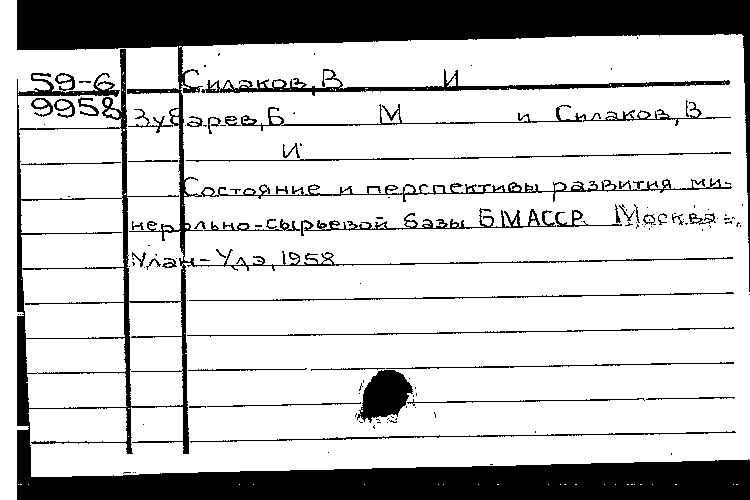 59-6 Силаков, В И
9958 Зубарев, Б М и Силаков, В
И
Состояние и перспективы развития ми-
нерально-сырьевой базы БМАССР. Москва-
Улан-Удэ, 1958